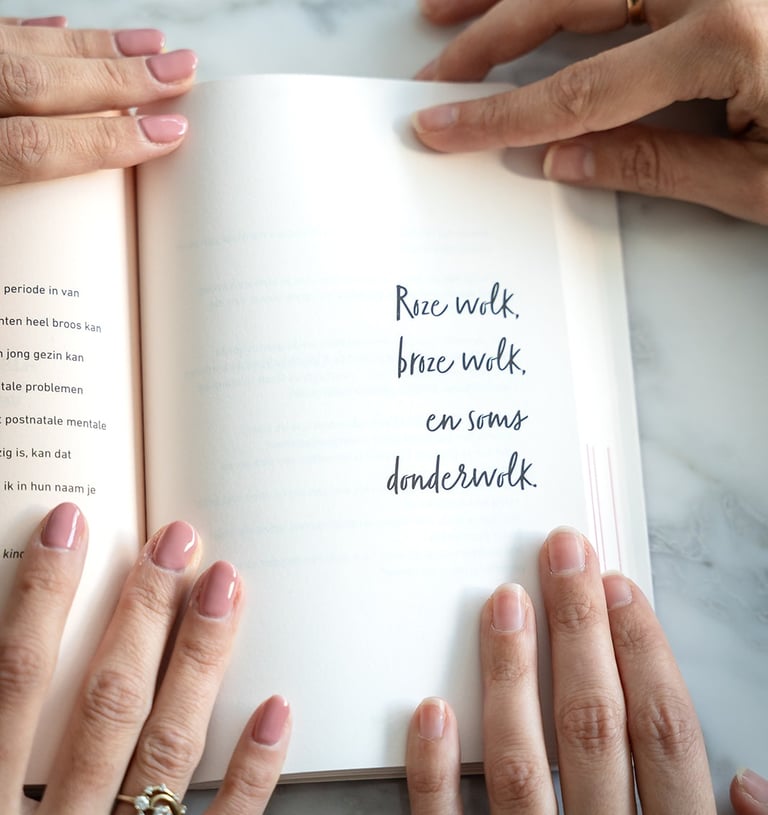 periode in van
heel broos kan
jong gezin kan
problemen
postnatale mentale
is, kan dat
ik in hun naam je
Roze wolk,
broze wolk,
en soms
donderwolk.